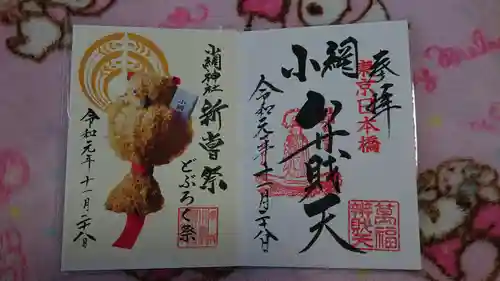 小網神社
新嘗祭
どぶろく祭
令和元年十一月二十八日
奉拝
東京日本橋
小網
弁財天
令和元年十一月二十八日
萬福